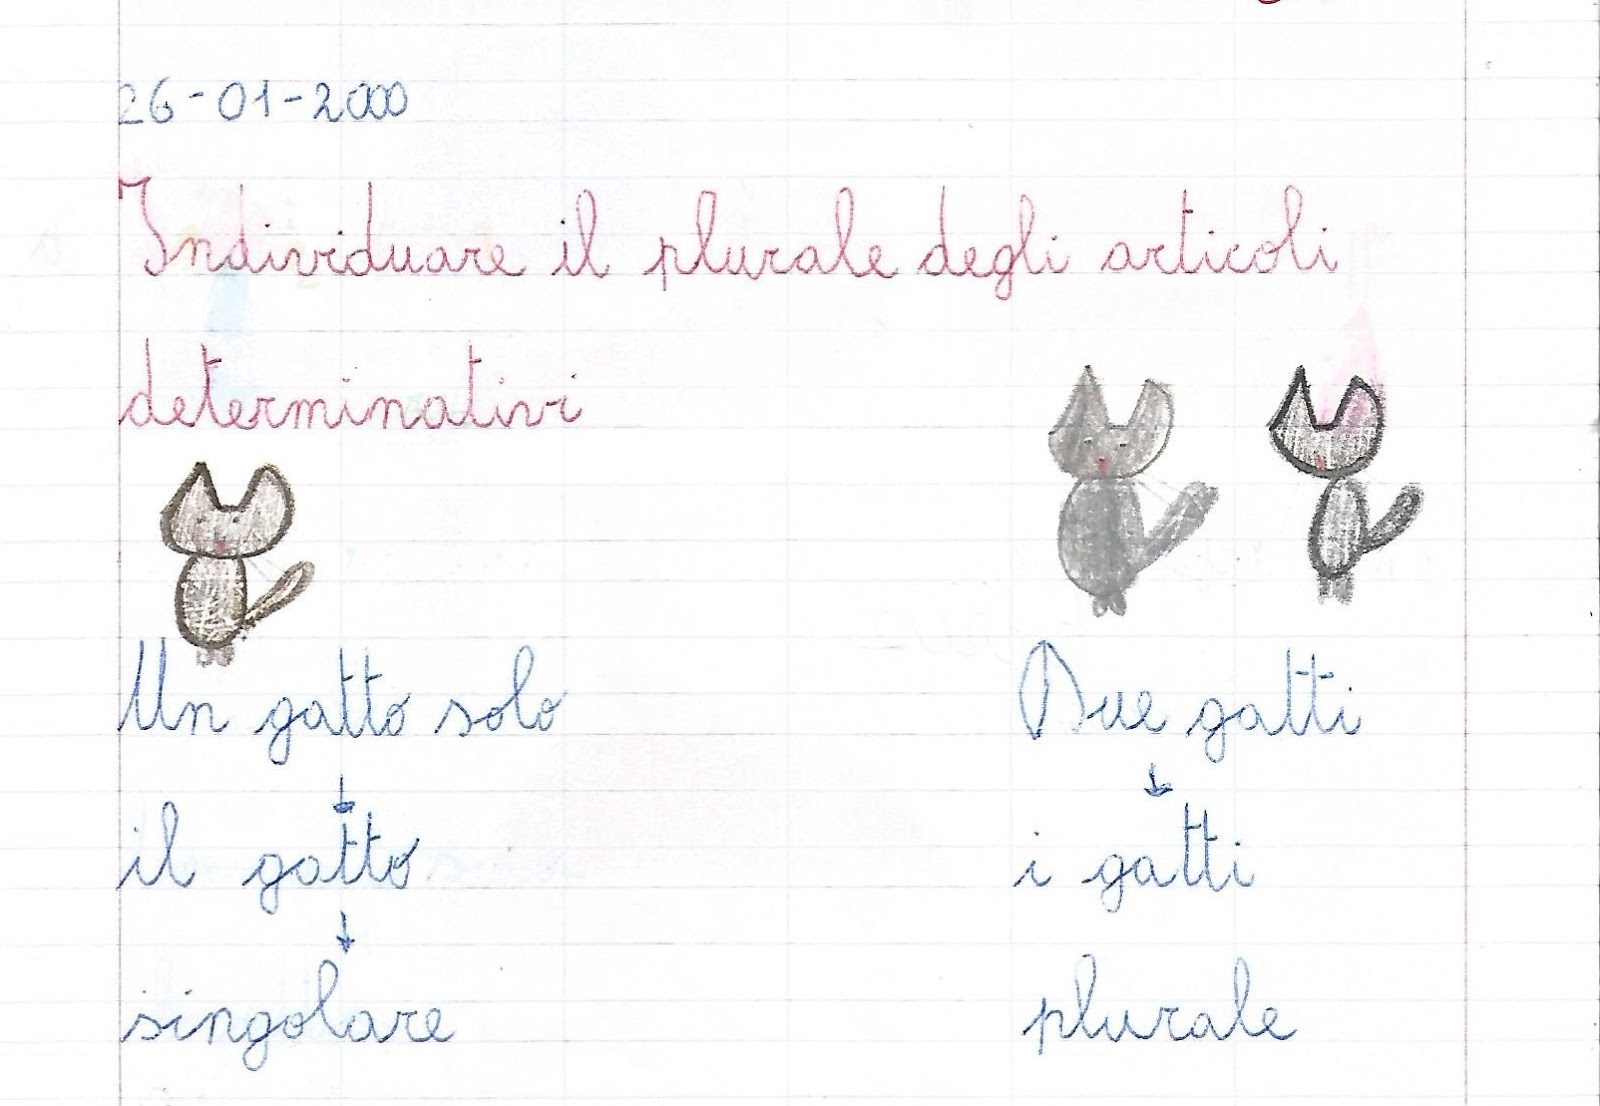 26-01-2000
Individuare il plurale degli articoli
determinativi
Un gatto solo
Due gatti
il gatto
i gatti
singolare
plurale